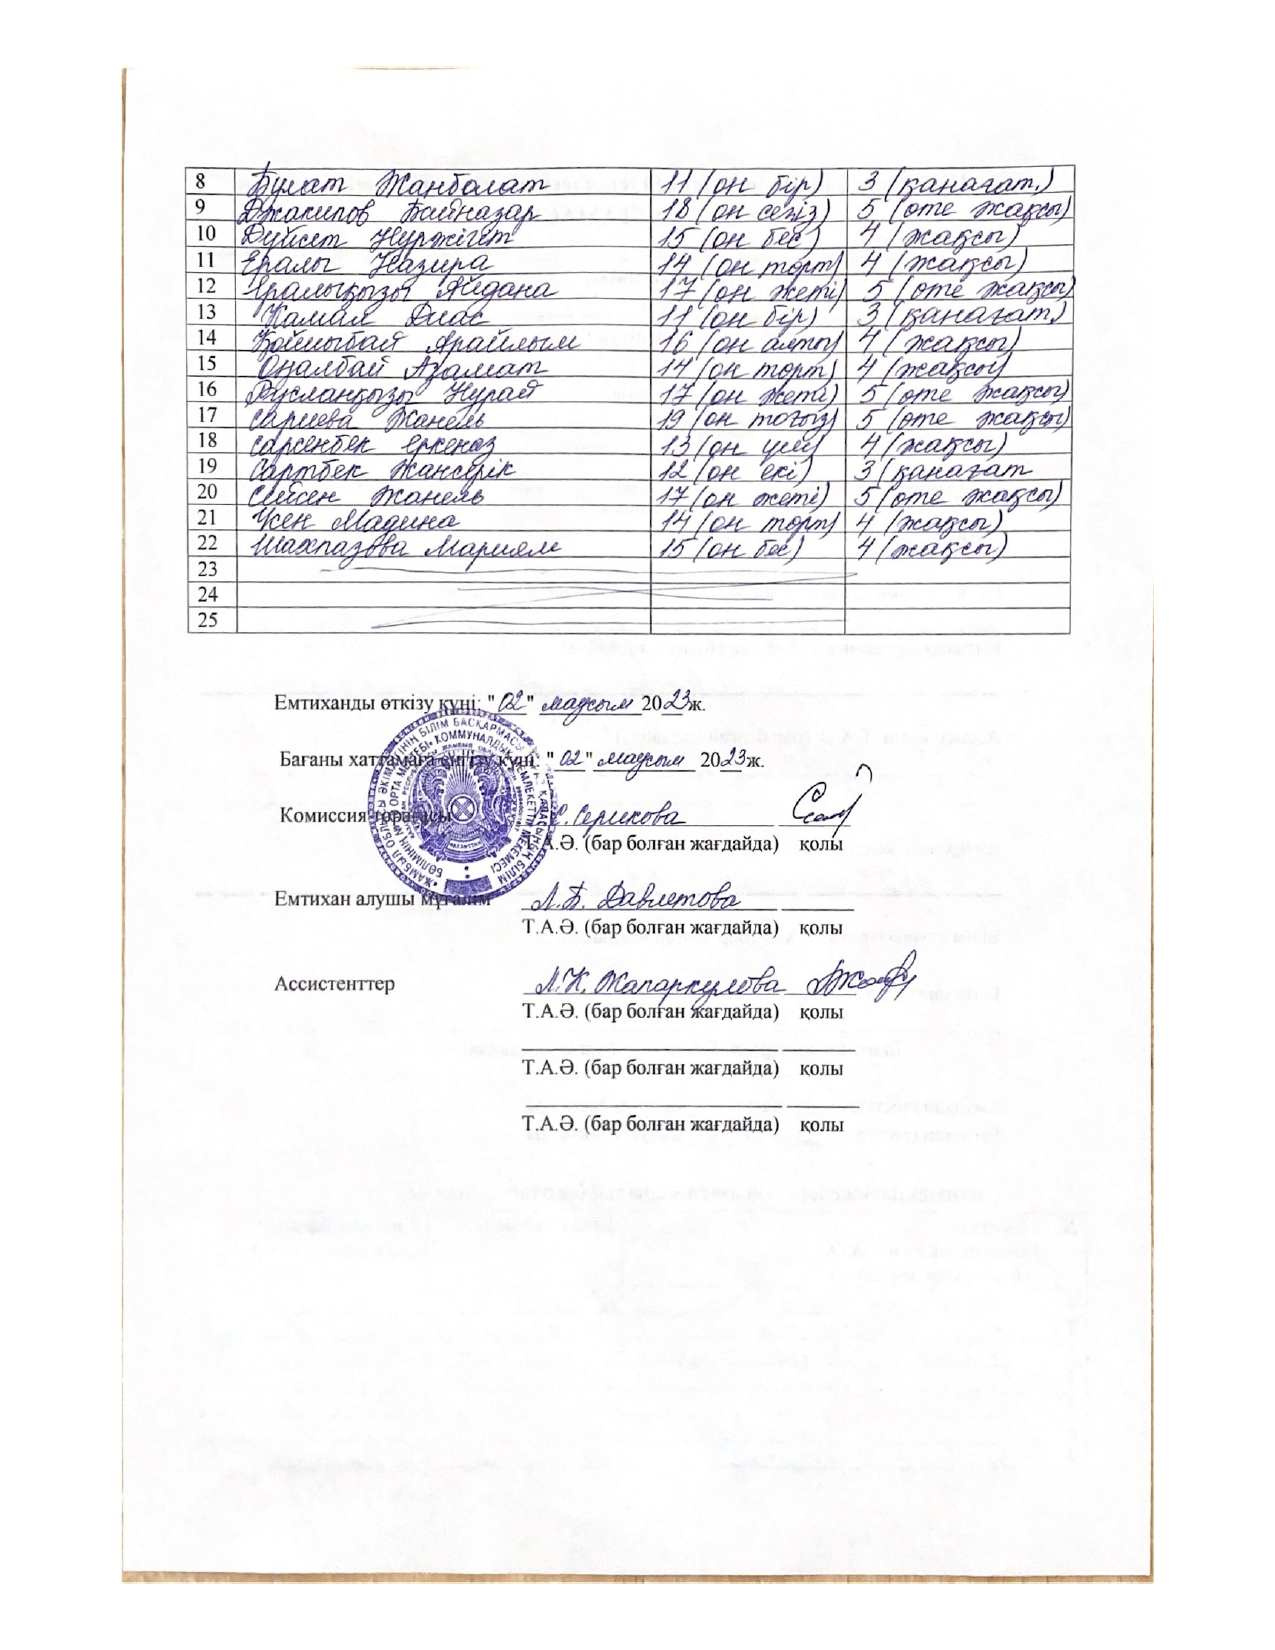 8 Булат Жанболат 11 (он бір) 3 (қанағат.)
9 Джакипов Байназар 18 (он сегіз) 5 (өте жақсы)
10 Дүйсет Нұржігіт 15 (он бес) 4 (жақсы)
11 Ералы Назира 14 (он төрт) 4 (жақсы)
12 Ералықызы Айдана 17 (он жеті) 5 (өте жақсы)
13 Камал Диас 11 (он бір) 3 (қанағат.)
14 Қойшыбай Арайлым 16 (он алты) 4 (жақсы)
15 Оңалбай Азамат 14 (он төрт) 4 (жақсы)
16 Русланқызы Нурай 17 (он жеті) 5 (өте жақсы)
17 Сариева Жанель 19 (он тоғыз) 5 (өте жақсы)
18 Сәрсенбек Еркеназ 13 (он үш) 4 (жақсы)
19 Сартбек Жансерік 12 (он екі) 3 (қанағат
20 Сейсен Жанель 17 (он жеті) 5 (өте жақсы)
21 Үсен Мадина 14 (он төрт) 4 (жақсы)
22 Шахпазова Мариям 15 (он бес) 4 (жақсы)
23
24
25
Емтиханды өткізу күні: "02" маусым 2023 ж.
Бағаны хаттамаға енгізу күні: "02" маусым 2023 ж.
Комиссия төрағасы С.Серикова
Т.А.Ә. (бар болған жағдайда) қолы
Емтихан алушы мұғалім Л.Б. Давлетова
Т.А.Ә. (бар болған жағдайда) қолы
Ассистенттер Л.К. Жапаркулова
Т.А.Ә. (бар болған жағдайда) қолы
Т.А.Ә. (бар болған жағдайда) қолы
Т.А.Ә. (бар болған жағдайда) қолы